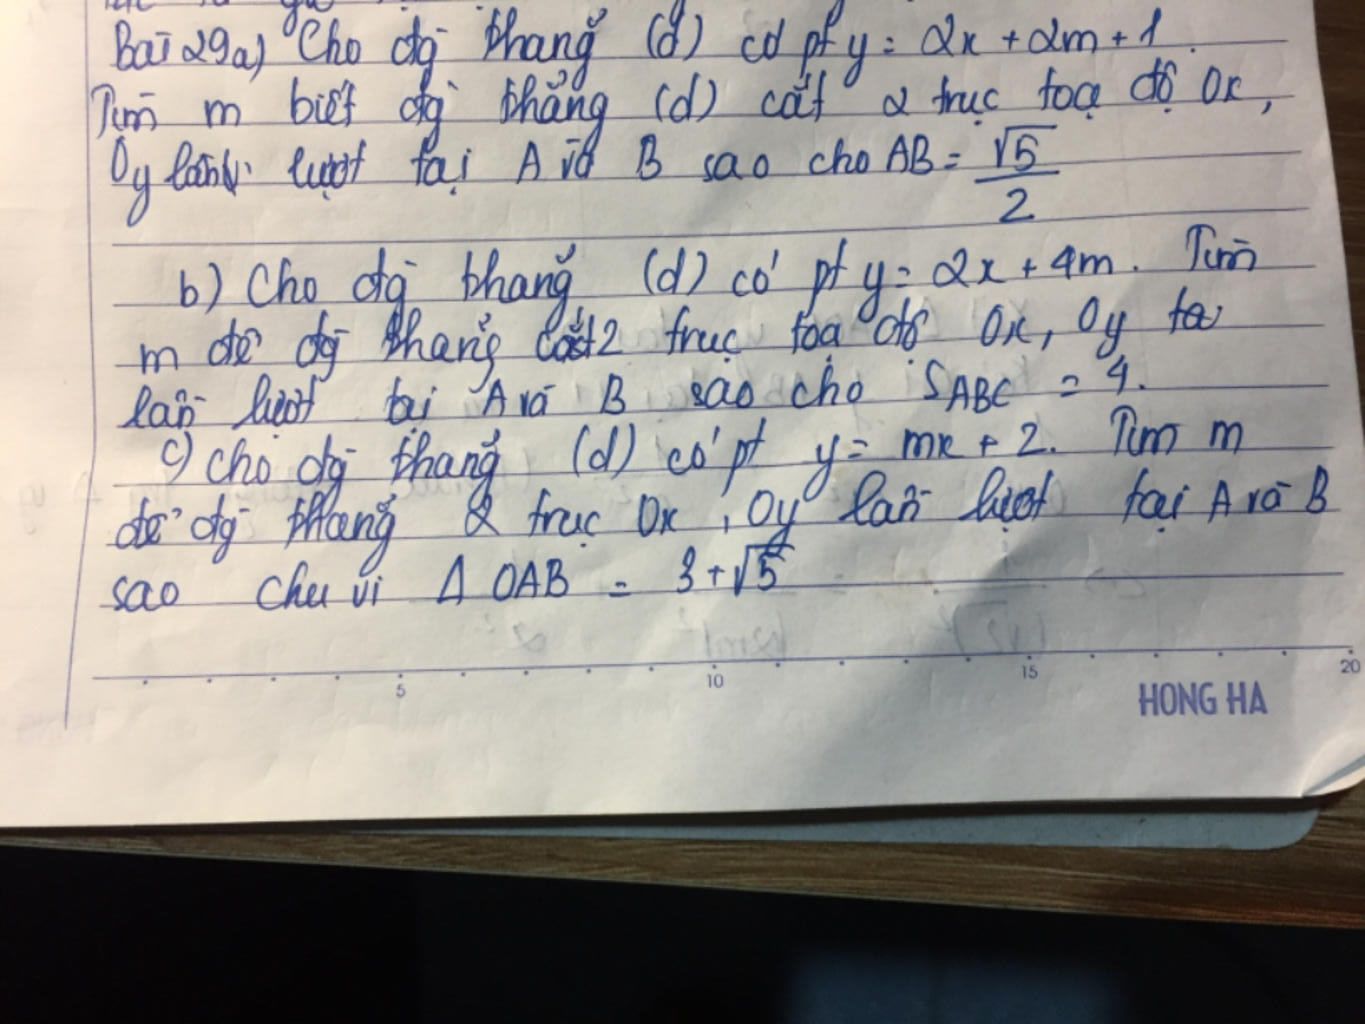 Bài 29a) Cho đg thẳng (d) có pt y = 2x + 2m + 1.
Tìm m biết đg thẳng (d) cắt 2 trục toạ độ Ox,
Oy lần lượt tại A và B sao cho AB = √5/2
b) Cho đg thẳng (d) có pt y = 2x + 4m. Tìm
m để đg thẳng cắt 2 trục toạ độ Ox, Oy
lần lượt tại A và B sao cho SABC = 4.
c) Cho đg thẳng (d) có pt y = mx + 2. Tìm m
để đg thẳng 2 trục Ox, Oy lần lượt tại A và B
sao chu vi Δ OAB = 3 + √5
5 10 15 20
HONG HA